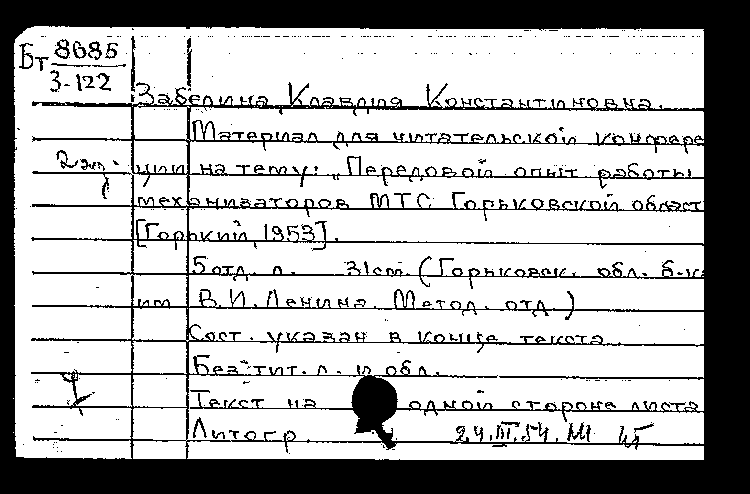 Бт 8685
3-122
Забелина, Клавдия Константиновна.
Материал для читательской конфере
2 экз. ции на тему: „Передовой опыт работы
механизаторов МТС Горьковской област
[Горький, 1953].
5 отд. л. 31 см. (Горьковск. обл. б-ка
им В.И. Ленина. Метод. отд.)
Сост. указан в конце текста
Без тит. л. и обл.
Текст на одной стороне листа
Литогр. 24.III.54.